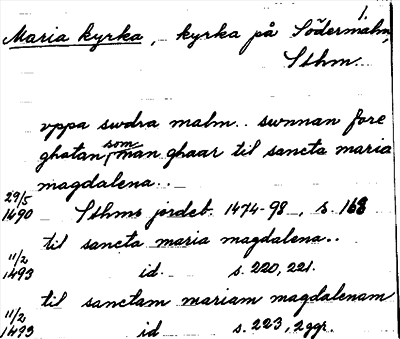 1.
Maria kyrka, kyrka på Södermalm,
Sthm...
vppa swdra malm.. swnnan fore
ghatan, som man ghaar til sancta maria
magdalena..
29/5 1490 Sthms jordeb. 1474-98, s. 168
til sancta maria magdalena..
11/2 1493 id. s. 220, 221.
til sanctam mariam magdalenam
11/2 1493 id s. 223, 2 ggr.